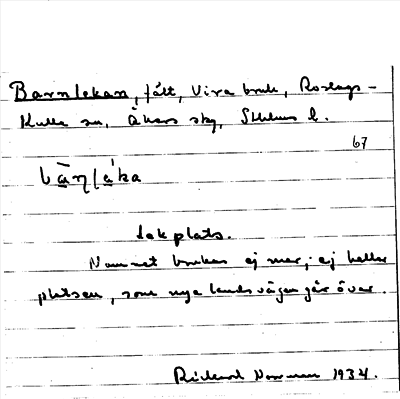 Barnlekan, fält, Vira bruk, Roslags-
Kulla sn, Åkers skg, Sthlms l.
67
bą̄ṇḷáka
lekplats.
Namnet brukas ej mer, ej heller
platsen, som nya landsvägen går över.
Rickard Norman 1934.